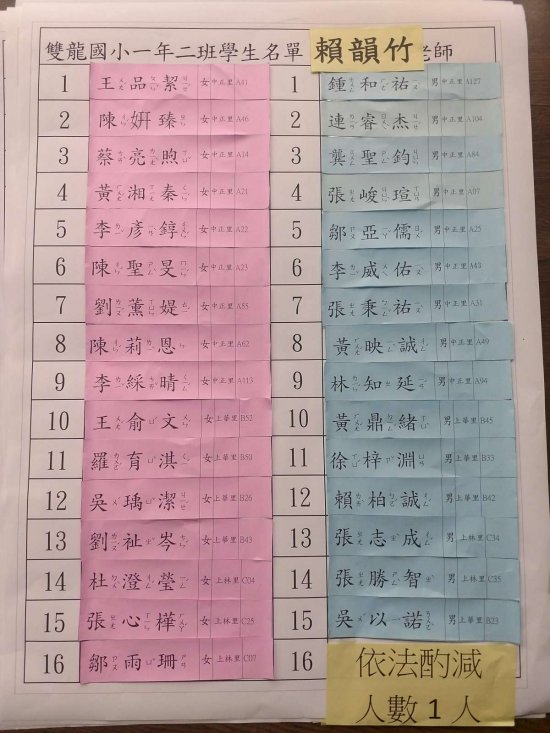 雙龍國小一年二班學生名單 賴韻竹 老師
1 王品絜 女 中正里 A41
2 陳妍臻 女 中正里 A46
3 蔡亮煦 女 中正里 A14
4 黃湘秦 女 中正里 A21
5 李彥錞 女 中正里 A22
6 陳聖旻 女 中正里 A23
7 劉薰媞 女 中正里 A55
8 陳莉恩 女 中正里 A62
9 李綵晴 女 中正里 A113
10 王俞文 女 上華里 B52
11 羅育淇 女 上華里 B50
12 吳瑀潔 女 上華里 B26
13 劉祉岑 女 上華里 B43
14 杜澄瑩 女 上林里 C04
15 張心樺 女 上林里 C25
16 鄒雨珊 女 上林里 C07
1 鍾和祐 男 中正里 A127
2 連睿杰 男 中正里 A104
3 龔聖鈞 男 中正里 A84
4 張峻瑄 男 中正里 A07
5 鄒亞儒 男 中正里 A25
6 李威佑 男 中正里 A48
7 張秉祐 男 中正里 A31
8 黃映誠 男 中正里 A49
9 林知延 男 中正里 A94
10 黃鼎緒 男 上華里 B45
11 徐梓淵 男 上華里 B33
12 賴柏誠 男 上華里 B42
13 張志成 男 上林里 C34
14 張勝智 男 上林里 C35
15 吳以諾 男 上華里 B23
16 依法酌減
人數1人